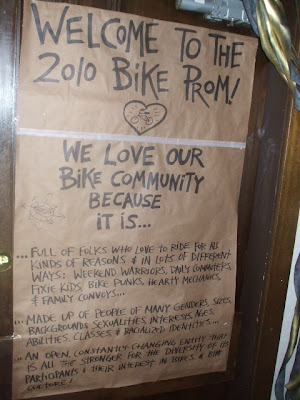 WELCOME TO THE
2010 BIKE PROM!
WE LOVE OUR
BIKE COMMUNITY
BECAUSE
IT IS...
... FULL OF FOLKS WHO LOVE TO RIDE FOR ALL
KINDS OF REASONS & IN LOTS OF DIFFERENT
WAYS: WEEKEND WARRIORS, DAILY COMMUTERS,
FIXIE KIDS, BIKE PUNKS, HEARTY MECHANICS,
& FAMILY CONVOYS...
... MADE UP OF PEOPLE OF MANY GENDERS, SIZES,
BACKGROUNDS, SEXUALITIES, INTERESTS, AGES,
ABILITIES, CLASSES & RACIALIZED IDENTITIES...
... AN OPEN, CONSTANTLY-CHANGING ENTITY THAT
IS ALL THE STRONGER FOR THE DIVERSITY OF ITS
PARTICIPANTS & THEIR INTEREST IN BIKES & BIKE
CULTURE!